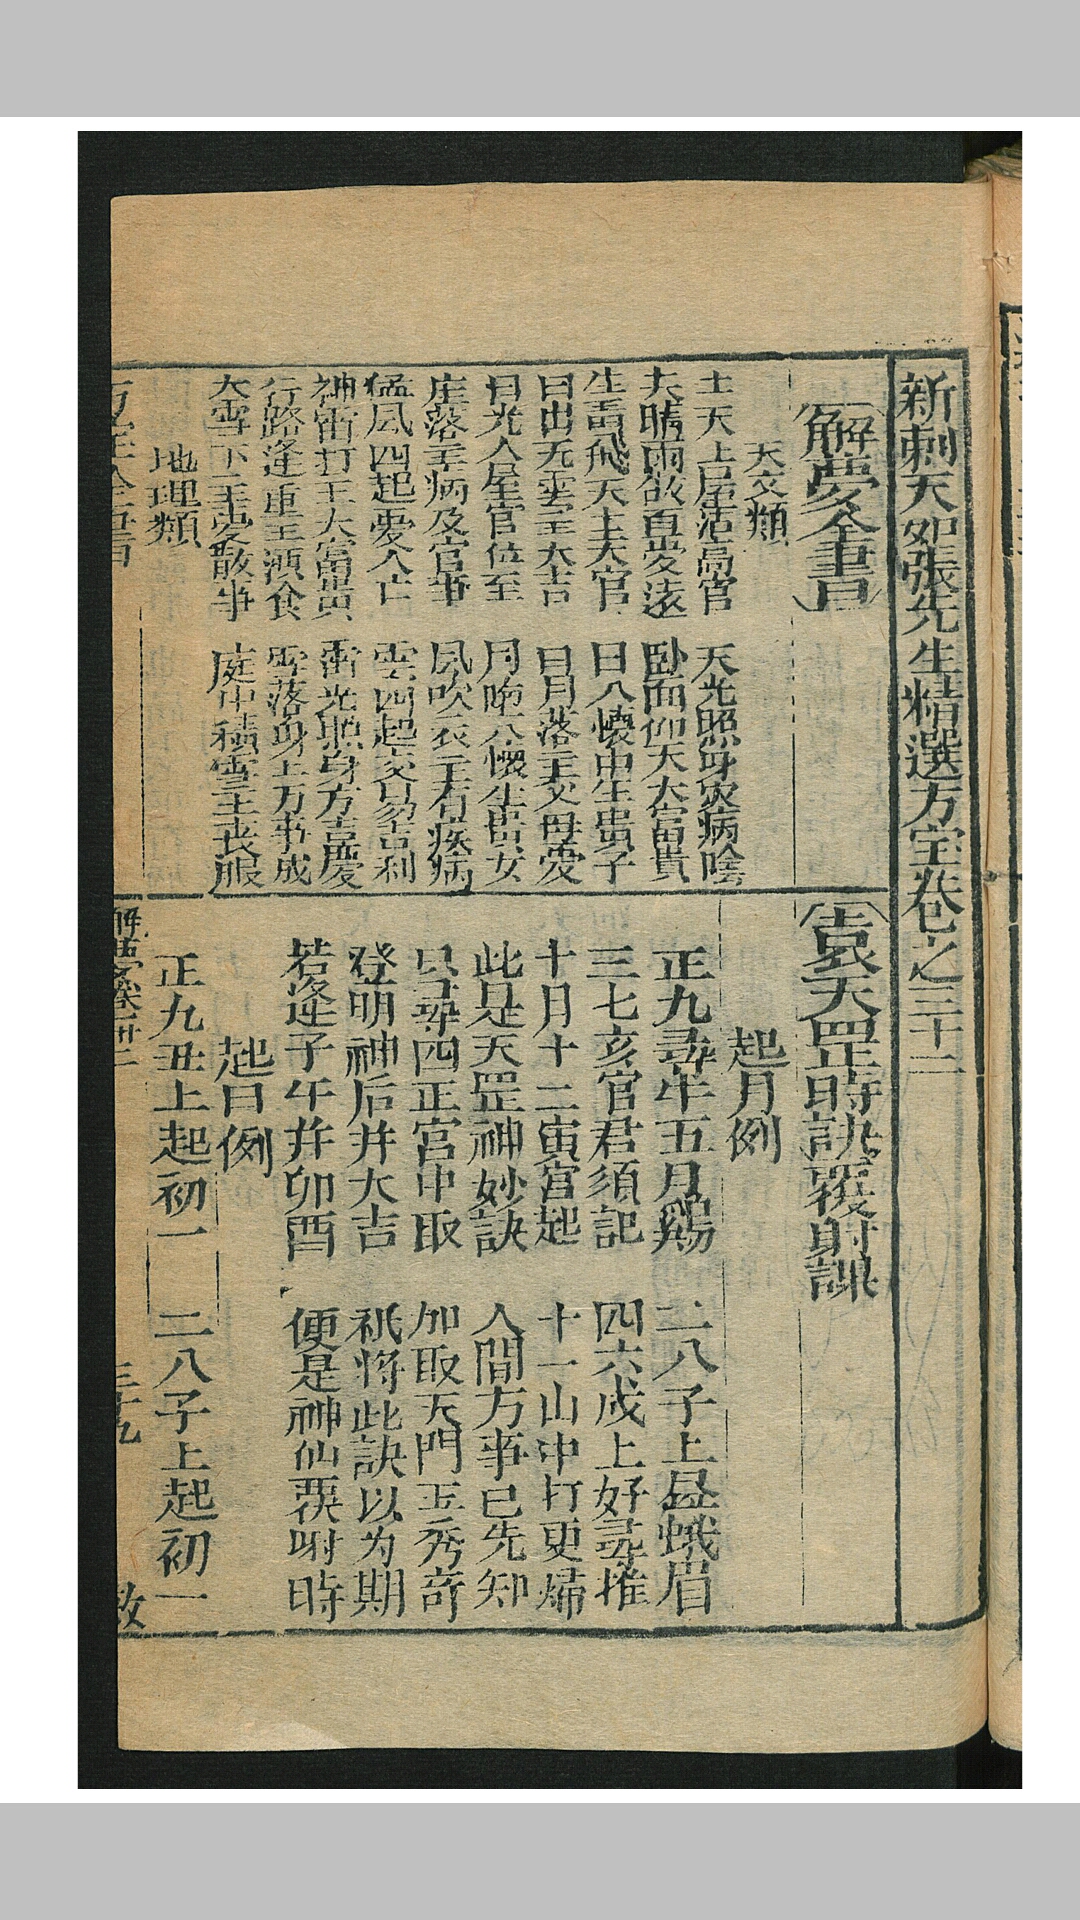 新刺天如張先生精選万宝卷之三十二
解夢全書
天文類
士天上屋活高官 天光照身災病除
天晴雨散百憂遠 卧面仰天大富貴
生羽飛天主大官 日入懷中生貴子
日出无雲主大吉 日月落主父母憂
日光入屋官位至 月墮入懷生貴女
庄落主病及官事 風吹衣主有疾病
猛風四起憂人亡 雲四起交易吉利
神雷打主大富貴 雷光照身方吉慶
行路逢重主酒食 雪落身上万事成
大雪下主憂散事 庭中積雪主丧服
地理類
袁天罡時訣覆射課
起月例
正九尋牛五月鷄 二八子上是蛾眉
三七亥官君須記 四六戍上好尋推
十月十二寅宫起 十一山中打更歸
此是天罡神妙訣 人間万事已先知
只尋四正宮中取 加取天門玉秀奇
登明神后并大吉 祇将此訣以为期
若逢子午并卯酉 便是神仙覆射時
起日例
正九丑上起初一 二八子上起初一
解夢卷卅二
三十九